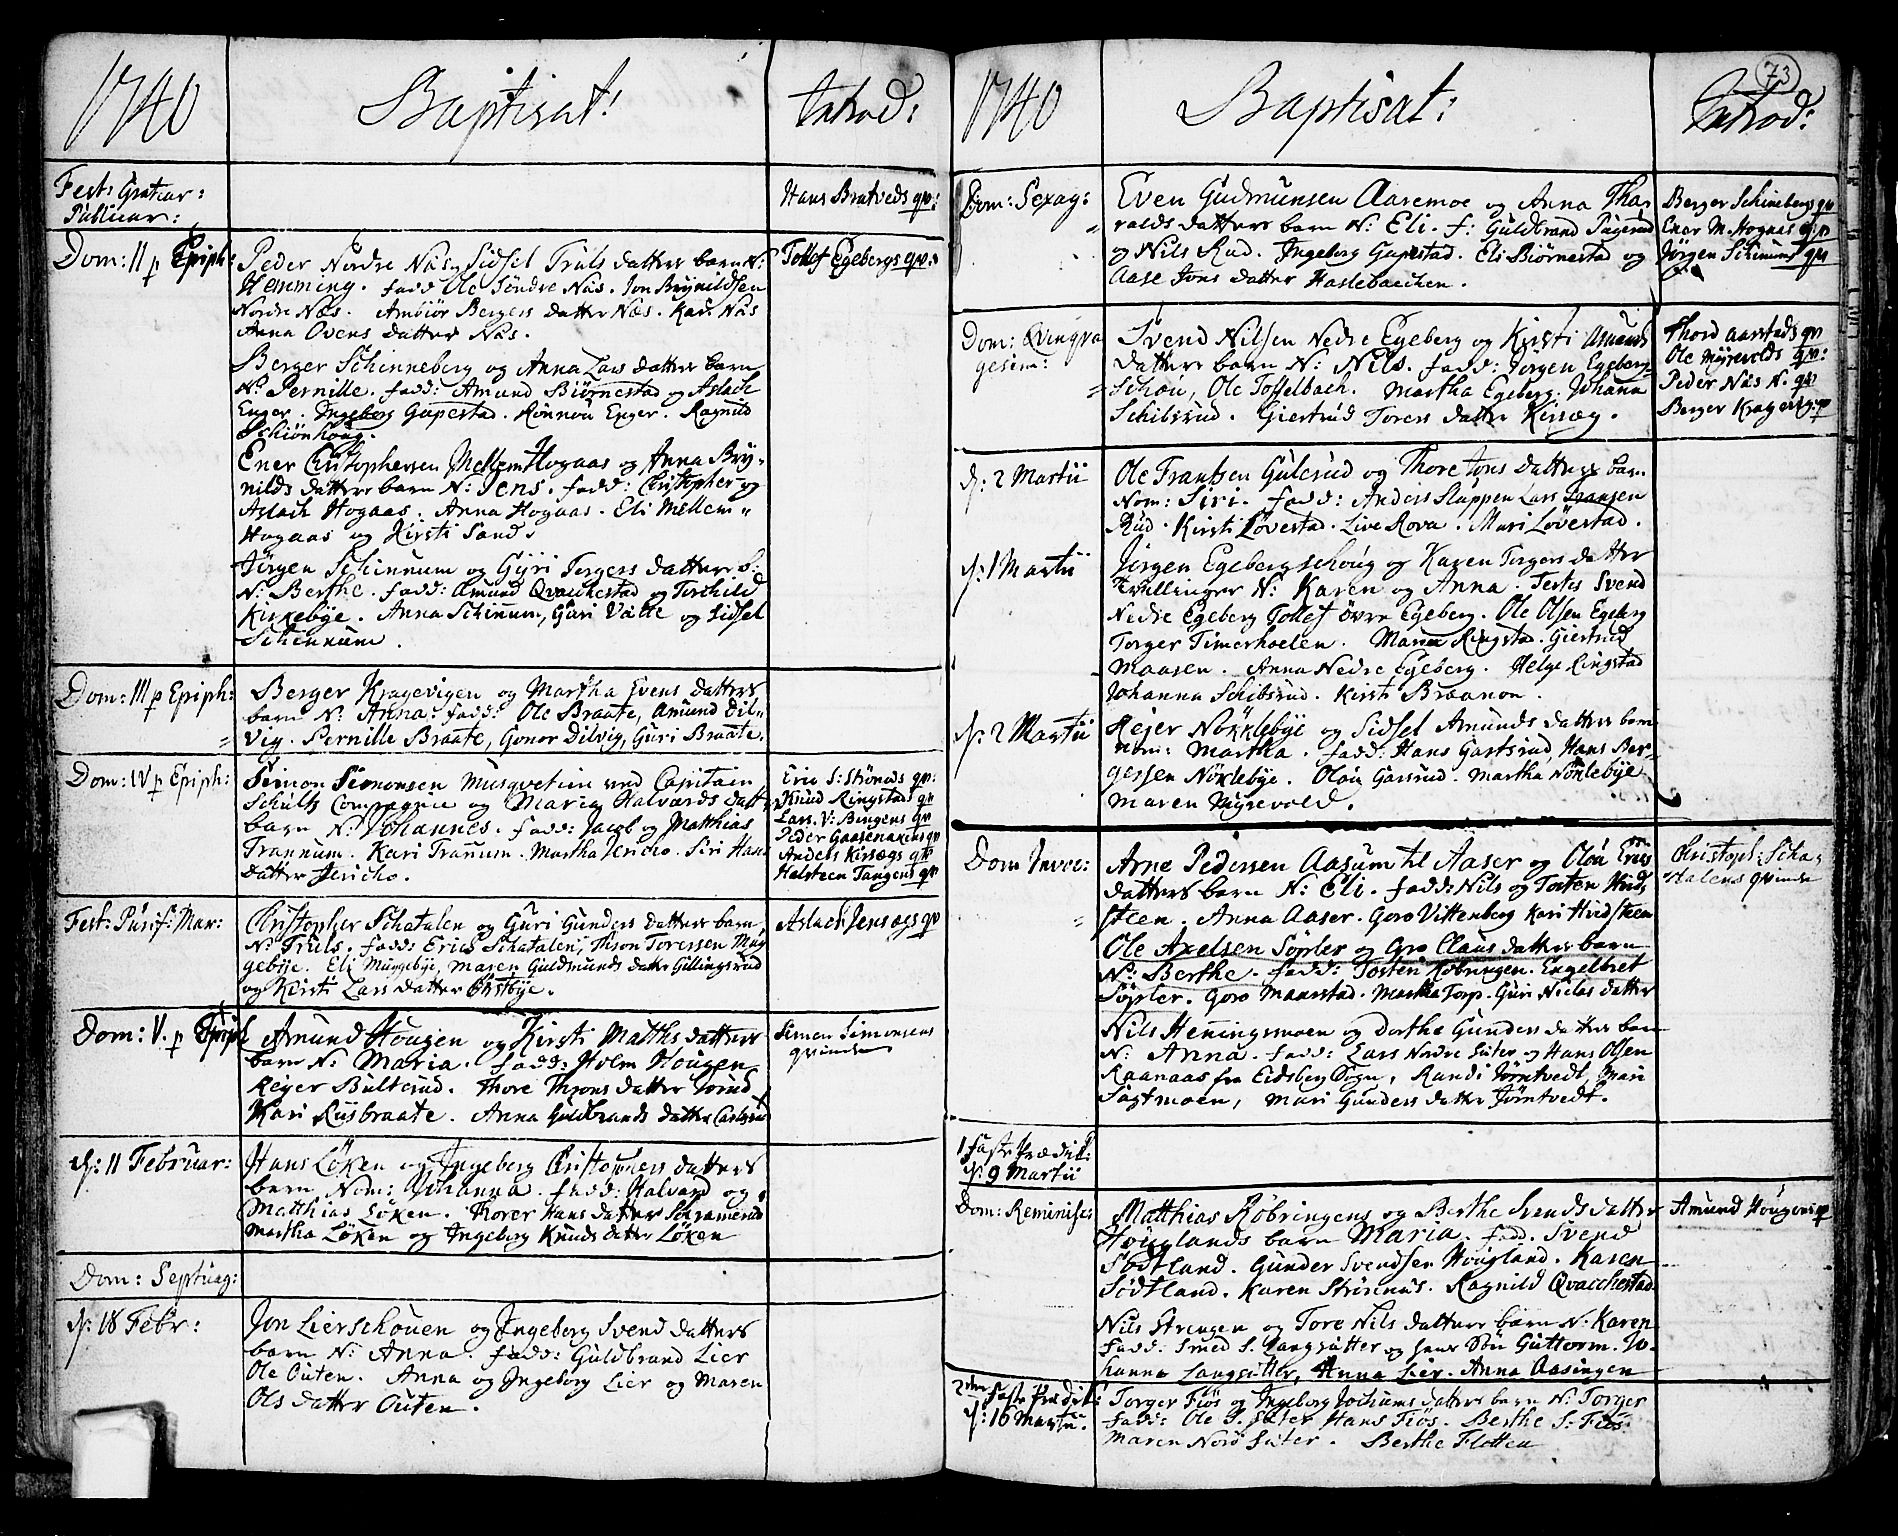 1740 Baptisat: Introd:
Fest: Gratiar:
Publicar:
Hans Bratveds qv:
Dom: II p Epiph:
Peder Nordre Næs, Sidsel Truls datters barn N:
Hemming. fadd: Ole Søndre Næs. Jon Brynildsen
Nordre Næs. Ambiør Bergers datter Næs. Kari Næs
Anna Ovens datter Næs.
Tollef Egebergs qv:
Berger Schinneberg og Anna Lars datters barn
N: Pernille. fadd: Amund Biørnestad og Aslach
Enger. Ingeborg Gapestad. Rønnou Enger. Ragnild
Schiønhoug.
Ener Christophersen Mellem Hogaas og Anna Bry-
nilds datters barn N: Jens. fadd: Christopher og
Aslach Hogaas. Anna Hogaas. Eli Mellem
Hogaas og Kirsti Sand.
Jørgen Schinnum og Gyri Torgers datters b:
N: Berthe. fadd: Amund Qvachestad og Torchild
Kirkebye. Anna Schinnum, Guri Valle og Sidsel
Schinnum.
Dom: III p Epiph:
Berger Kragevigen og Martha Evens datters
barn N: Anna. fadd: Ole Braate, Amund Dil-
vig. Pernille Braate, Gonor Dilvig, Guri Braate.
Dom: IV p Epiph:
Simon Simonsen Musqvetiir und Capitain
Schults Compagnie og Maria Halvards datt:
barn N: Johannes. fadd: Jacob og Matthias
Trannum. Kari Trannum. Martha Jericho. Siri Hans
datter Jericho.
Eric S: Strønes qv:
Knud Ringstads qv
Lars V: Bingens qv
Peder Gaasenaxens qv
Anders Kirsægs qv
Halsteen Tangens qv
Fest: Purif: Mar:
Christopher Schatalen og Guri Gunders datters barn
N: Truls. fadd: Erich Schatalen, Thron Toressen Mug
gebye. Eli Muggebye, Maren Guldmunds datter Gillingsrud
og Kirsti Lars datter Østbye.
Aslach qv
Dom: V. p Epiph
Amund Hougen og Kirsti Matths datters
barn N: Maria. fadd: Holm Hougen
Rejer Bulterud. Thore Throns datter
Kari Rusbraate. Anna Guldbrands datter Carlsrud
Simon Simonsens
qvinde
d: 11 Februar:
Hans Løken og Ingeborg Christophers datters
barn Nom: Johanna. fadd: Halvard og
Matthias Løken. Thorer Hans datter Schramerud
Martha Løken og Ingeborg Knuds datter Løken
Dom: Septuag:
d: 18 Febr:
Jon Lierschouen og Ingeborg Svend datters
barn N: Anna. fadd: Guldbrand Lier
Ole Outen. Anna og Ingeborg Lier og Maren
Ols datter Outen.
73
1740 Baptisat: Introd:
Dom: Sexag:
Even Gudmunsen Aaremoe og Anna Tha-
ralds datters barn N: Eli. f: Guldbrand Pugerud
og Nils Rud. Ingeborg Gapestad. Eli Biørnestad og
Aase Jons datter Haslebacchen.
Berger Schinebergs qv
Ener M. Hognes q:v
Jørgen Schinums qv
Dom: Qvinqva
gesim:
Svend Nilsen Nedre Egeberg og Kirsti Amunds
datters barn N: Nils. fadd: Jørgen Egeberg-
schou, Ole Toffelbach. Martha Egeberg. Johana
Schibsrud. Giertrud Torers datter Kirsæg.
Thord Aarstads qv
Ole Myrvolds qv:
Peder Næs N. qv
Berger Kragevig: qv
d: 2 Martii
Ole Frantsen Gulerud og Thore Jons datters barn
Nom: Siri. fadd: Anders Slappen Lars Fransen
Rud. Kirsti Løvestad. Live Rova. Mari Løvestad.
d: 1 Martii
Jørgen Egebergschoug og Karen Torgers datter
Tvillinger N: Karen og Anna. Testes Svend
Nedre Egeberg Tollef øvre Egeberg. Ole Olsen Egeberg
Torger Timerholen. Maria Ringstad. Giertrud
Maasen. Anna Nedre Egeberg. Helge Ringstad
Johanna Schibsrud. Kirsti Braanon.
d: 2 Martii
Rejer Nøkklebye og Sidsel Amunds datters barn
nom: Martha. fadd: Hans Garsrud, Hans Ber-
gersen Nøklebye. Oløu Garsrud. Martha Nøklebye
Maren Myrevold.
Dom Invoc:
Arne Pedersen Aasum til Aaser og Oløu Erics
datters barn N: Eli. fadd: Nils og Torsten Hvid
steen. Anna Aaser. Goro Vittenberg Kari Hvidsteen
Christoph: Scha-
talens qvinde
Ole Axelsen Sørler og Gro Claus datters barn
N: Berthe. fadd: Tosten Robringen. Engelbret
Sørler. Goro Maarstad. Martha Torp. Guri Niclas datter
Nils Heningsmoen og Dorthe Gunders datters barn
N: Anna. fadd: Lars Nordre Suter og Hans Olsen
Raanaas fra Eidsberg Sogn, Randi Jørntvedt, Mari
Sagtmoen, Mari Gunders datter Jørntvedt.
1 Faste Prædik:
d: 9 Martii
Dom: Reminisc:
Matthias Robringens og Berthe Svends datter
Houglands barn Maria. fadd. Svend
Sødtland. Gunder Svendsen Hougland. Karen
Sødtland. Karen Strønnæs. Ragnild Qvacchestad.
Amund Hougens qv
Nils Strengen og Tore Nils datters barn N: Karen
fadd: Smed S. Langsutter og hans Søn Guttorm. Jo-
hanna Langsutter, Anna Lier. Anna Aasingen
2den Faste Prædik:
d: 16 Martii.
Torger Fiøs og Ingeborg Jochums datters barn N: Torger
fadd: Ole S. Suter Hans Fiøs. Berthe S: Fiøs.
Maren Nord Suter. Berthe Flotten